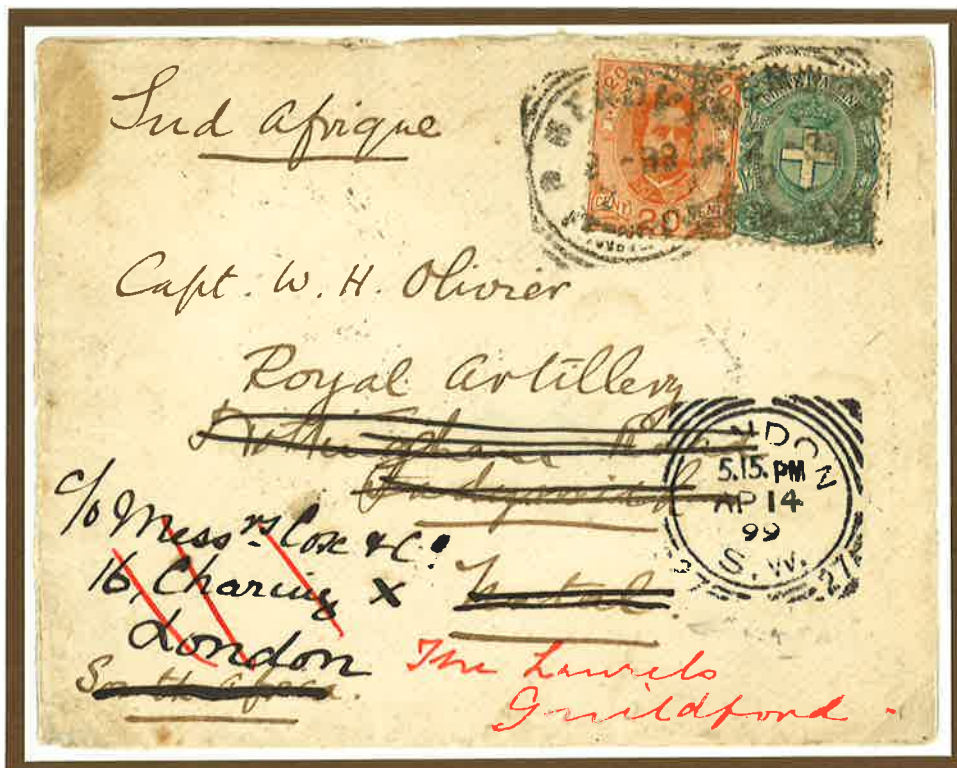 Sud Afrique
CENT. 20 CENT.
Capt. W. H. Olivier
Royal Artillery
Nottingham Road
NDON
5.15. PM
AP 14
99
S.W.
27
c/o Messrs. Cox & Co.
16, Charing X
Natal.
London
South Africa.
The Laurels
Guildford -